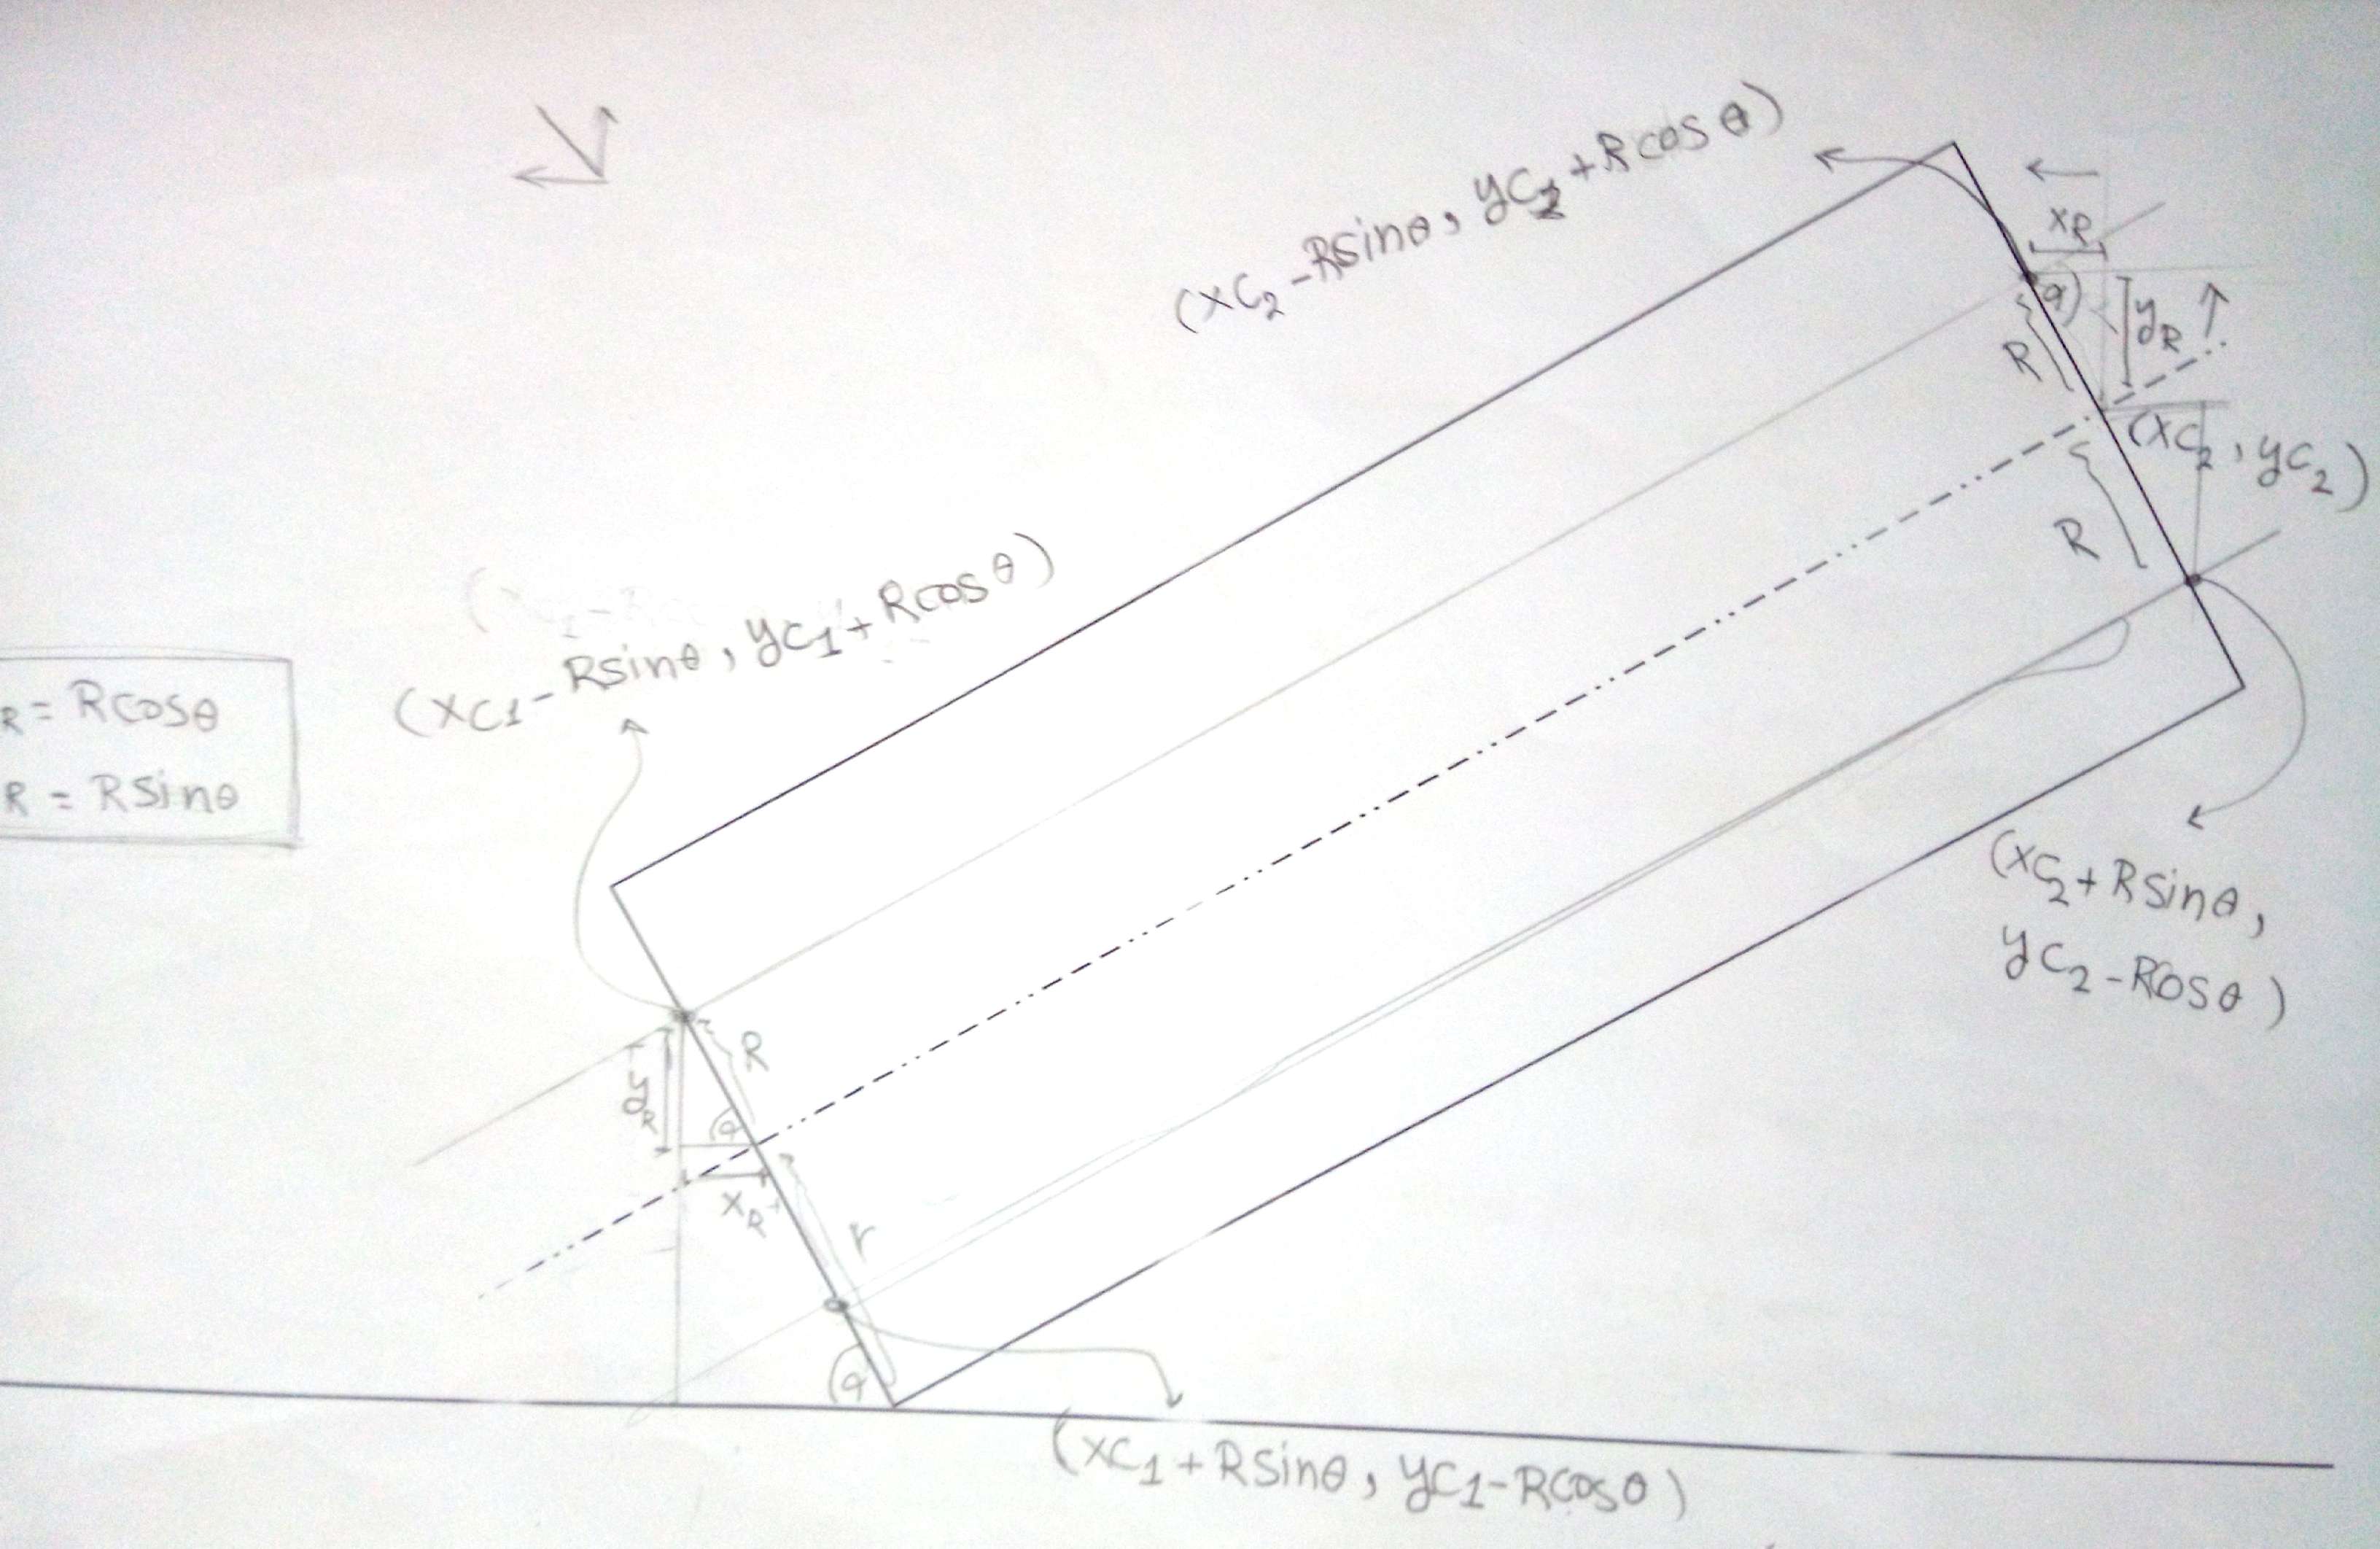 (xc₂ -Rsinθ, yc₂ +Rcosθ)
xR
yR
R
(xc₂, yc₂)
R
(xc1 -Rsinθ, yc1+Rcosθ)
R = Rcosθ
R = Rsinθ
(xc₂+Rsinθ,
yc₂-Rosθ)
R
yR
xR
r
(xc1+Rsinθ, yc1-Rcosθ)